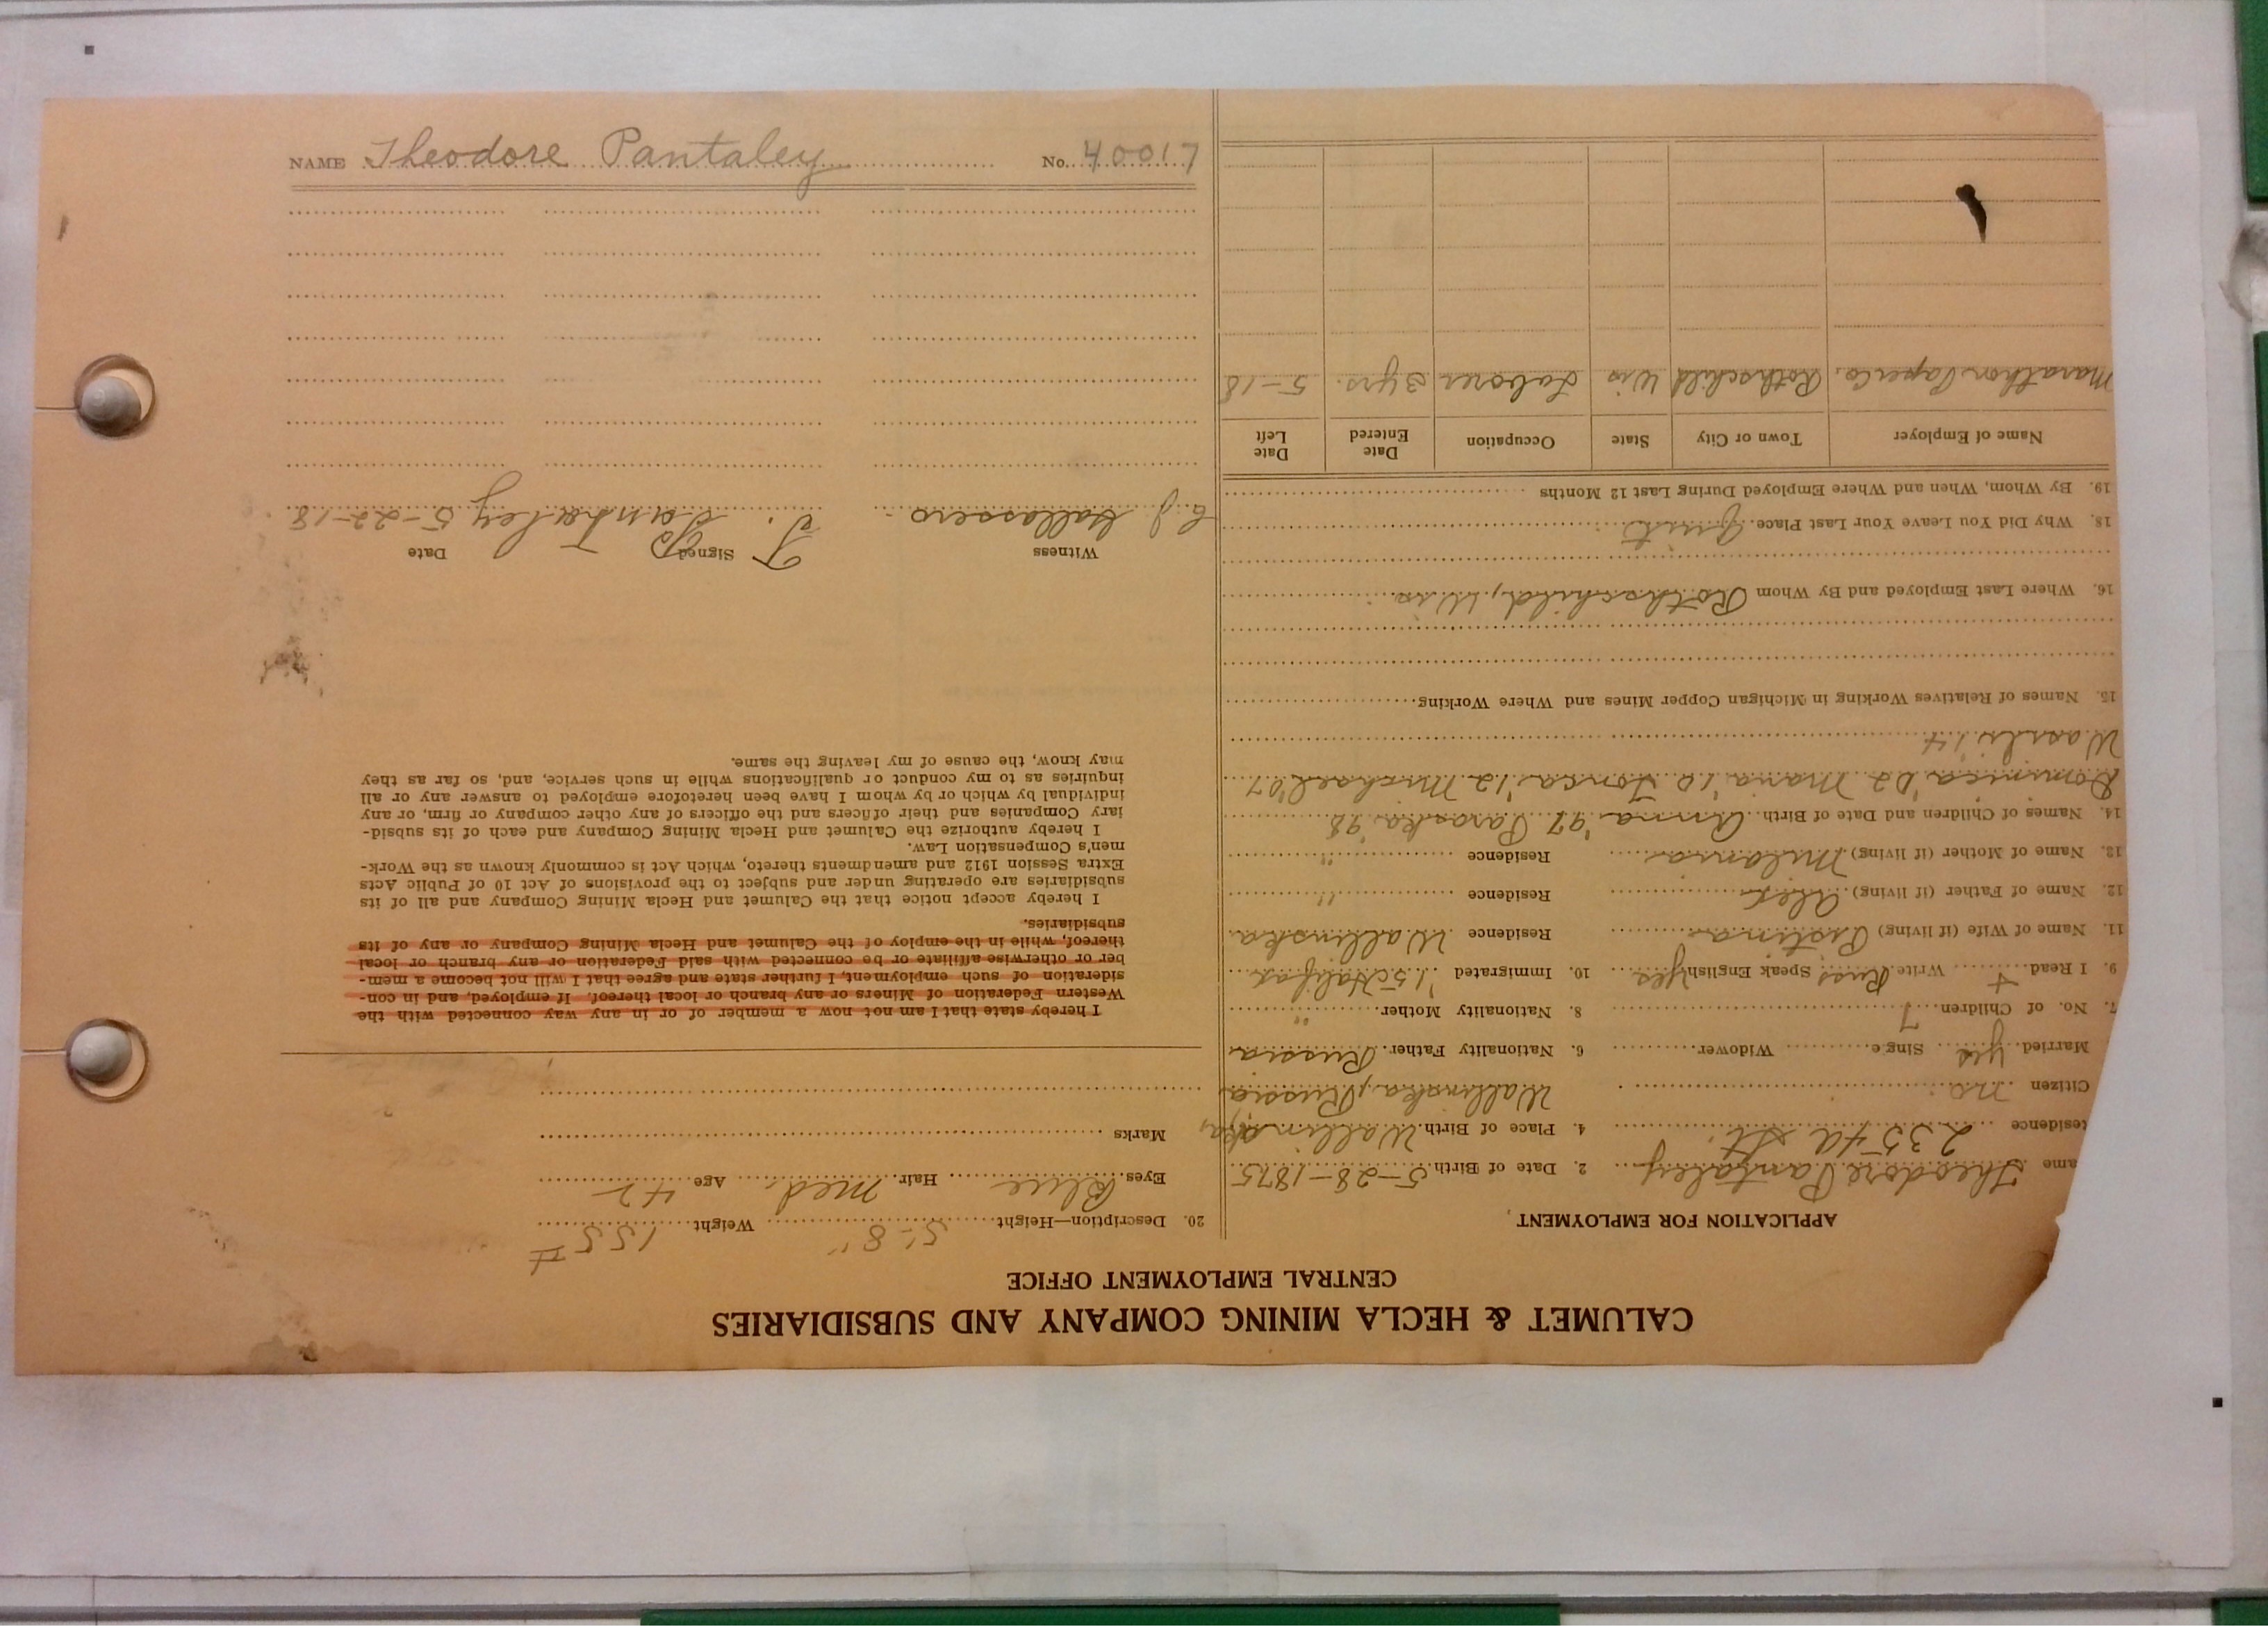 CALUMET & HECLA MINING COMPANY AND SUBSIDIARIES
CENTRAL EMPLOYMENT OFFICE
APPLICATION FOR EMPLOYMENT
ame Theodore Pantaley 2. Date of Birth 5-28-1875
esidence 2354 A St. 4. Place of Birth Wallinska,
Citizen no Wallinska, Russia
Married yes Single Widower 6. Nationality Father Russia
7. No. of Children 7 8. Nationality Mother "
9. I Read + Write Russ Speak English yes 10. Immigrated '15 Halifax
11. Name of Wife (if living) Residence Wallinska
12. Name of Father (if living) Alex Residence "
13. Name of Mother (if living) Milansa Residence "
14. Names of Children and Date of Birth Anna '97 Paraska '98
Dominica '02 Maria '10 Michael '07
Wasil '14
15. Names of Relatives Working in Michigan Copper Mines and Where Working
16. Where Last Employed and By Whom Rothschild, Wis
18. Why Did You Leave Your Last Place Quit
19. By Whom, When and Where Employed During Last 12 Months
Name of Employer Town or City State Occupation Date Entered Date Left
Marathon Paper Co. Rothschild Wis Laborer 3 yrs. 5-18
20. Description—Height 5'-8" Weight 155 #
Eyes Blue Hair med. Age 42
Marks
I hereby state that I am not now a member of or in any way connected with the
Western Federation of Miners or any branch or local thereof. If employed, and in con-
sideration of such employment, I further state and agree that I will not become a mem-
ber or otherwise affiliate or be connected with said Federation or any branch or local
thereof, while in the employ of the Calumet and Hecla Mining Company or any of its
subsidiaries.
I hereby accept notice that the Calumet and Hecla Mining Company and all of its
subsidiaries are operating under and subject to the provisions of Act 10 of Public Acts
Extra Session 1912 and amendments thereto, which Act is commonly known as the Work-
men's Compensation Law.
I hereby authorize the Calumet and Hecla Mining Company and each of its subsid-
iary Companies and their officers and the officers of any other company or firm, or any
individual by which or by whom I have been heretofore employed to answer any or all
inquiries as to my conduct or qualifications while in such service, and, so far as they
may know, the cause of my leaving the same.
Witness Signed Date
T. Pantaley 5-22-18
NAME Theodore Pantaley No. 40017